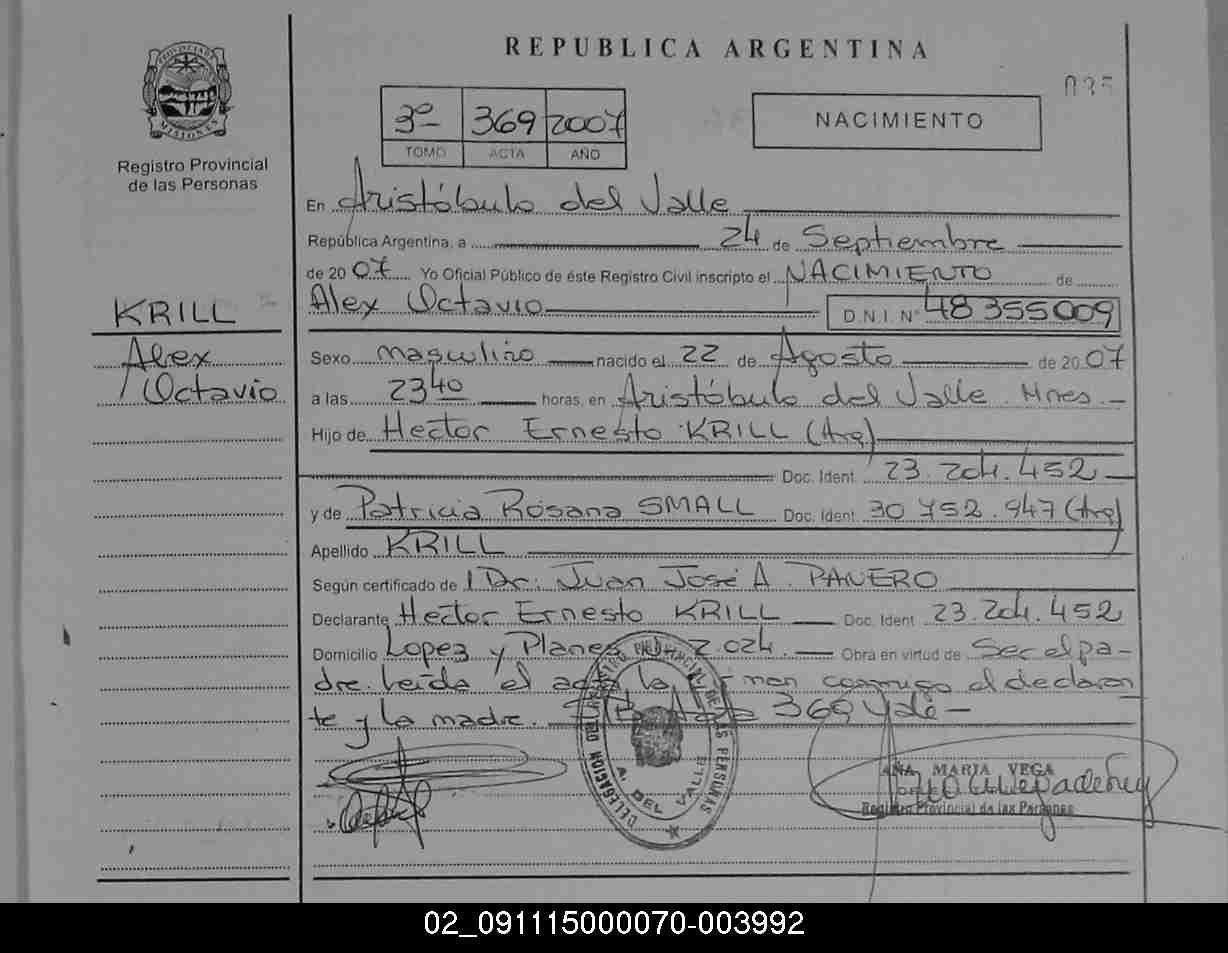 REPUBLICA ARGENTINA
035
PROVINCIA DE MISIONES
Registro Provincial
de las Personas
3º 369 2007
TOMO ACTA AÑO
NACIMIENTO
En Aristóbulo del Valle
República Argentina, a 24 de Septiembre
de 2007 Yo Oficial Público de éste Registro Civil inscripto el NACIMIENTO de
Alex Octavio D.N.I. Nº 48 355009
KRILL
Alex
Octavio
Sexo masculino nacido el 22 de Agosto de 2007
a las 23 40 horas, en Aristóbulo del Valle Mnes. -
Hijo de Hector Ernesto KRILL (Arg)
Doc. Ident. 23.204.452
y de Patricia Rosana SMALL Doc. Ident. 30 752.947 (Arg)
Apellido KRILL
Según certificado de Dr. Juan José A. PANERO
Declarante Hector Ernesto KRILL Doc. Ident 23.204.452
Domicilio Lopez y Planes 2.024. Obra en virtud de Ser el pa-
dre. Leída el acta la firman conmigo el declaran
te y la madre. 369 Vale -
DELEGACION DEL REGISTRO PROVINCIAL DE LAS PERSONAS
A. DEL VALLE
ANA MARIA VEGA
Registro Provincial de las Personas
02_091115000070-003992